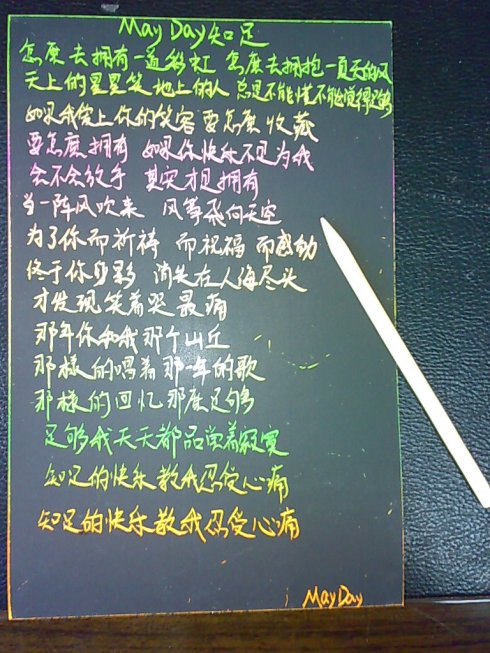 May Day 知足
怎麽去拥有一道彩虹 怎麽去拥抱一夏天的风
天上的星星笑地上的人 总是不能懂不能觉得足够
如果我爱上你的笑容 要怎麽收藏
要怎麽拥有 如果你快乐不是为我
会不会放手 其实才是拥有
当一阵风吹来 风筝飛向天空
为了你而祈祷 而祝福 而感动
终于你身影 消失在人海尽头
才发现笑着哭最痛
那年你和我那个山丘
那樣的唱着那一年的歌
那樣的回忆那麽足够
足够我天天都品尝着寂寞
知足的快乐教我忍受心痛
知足的快乐教我忍受心痛
May Day